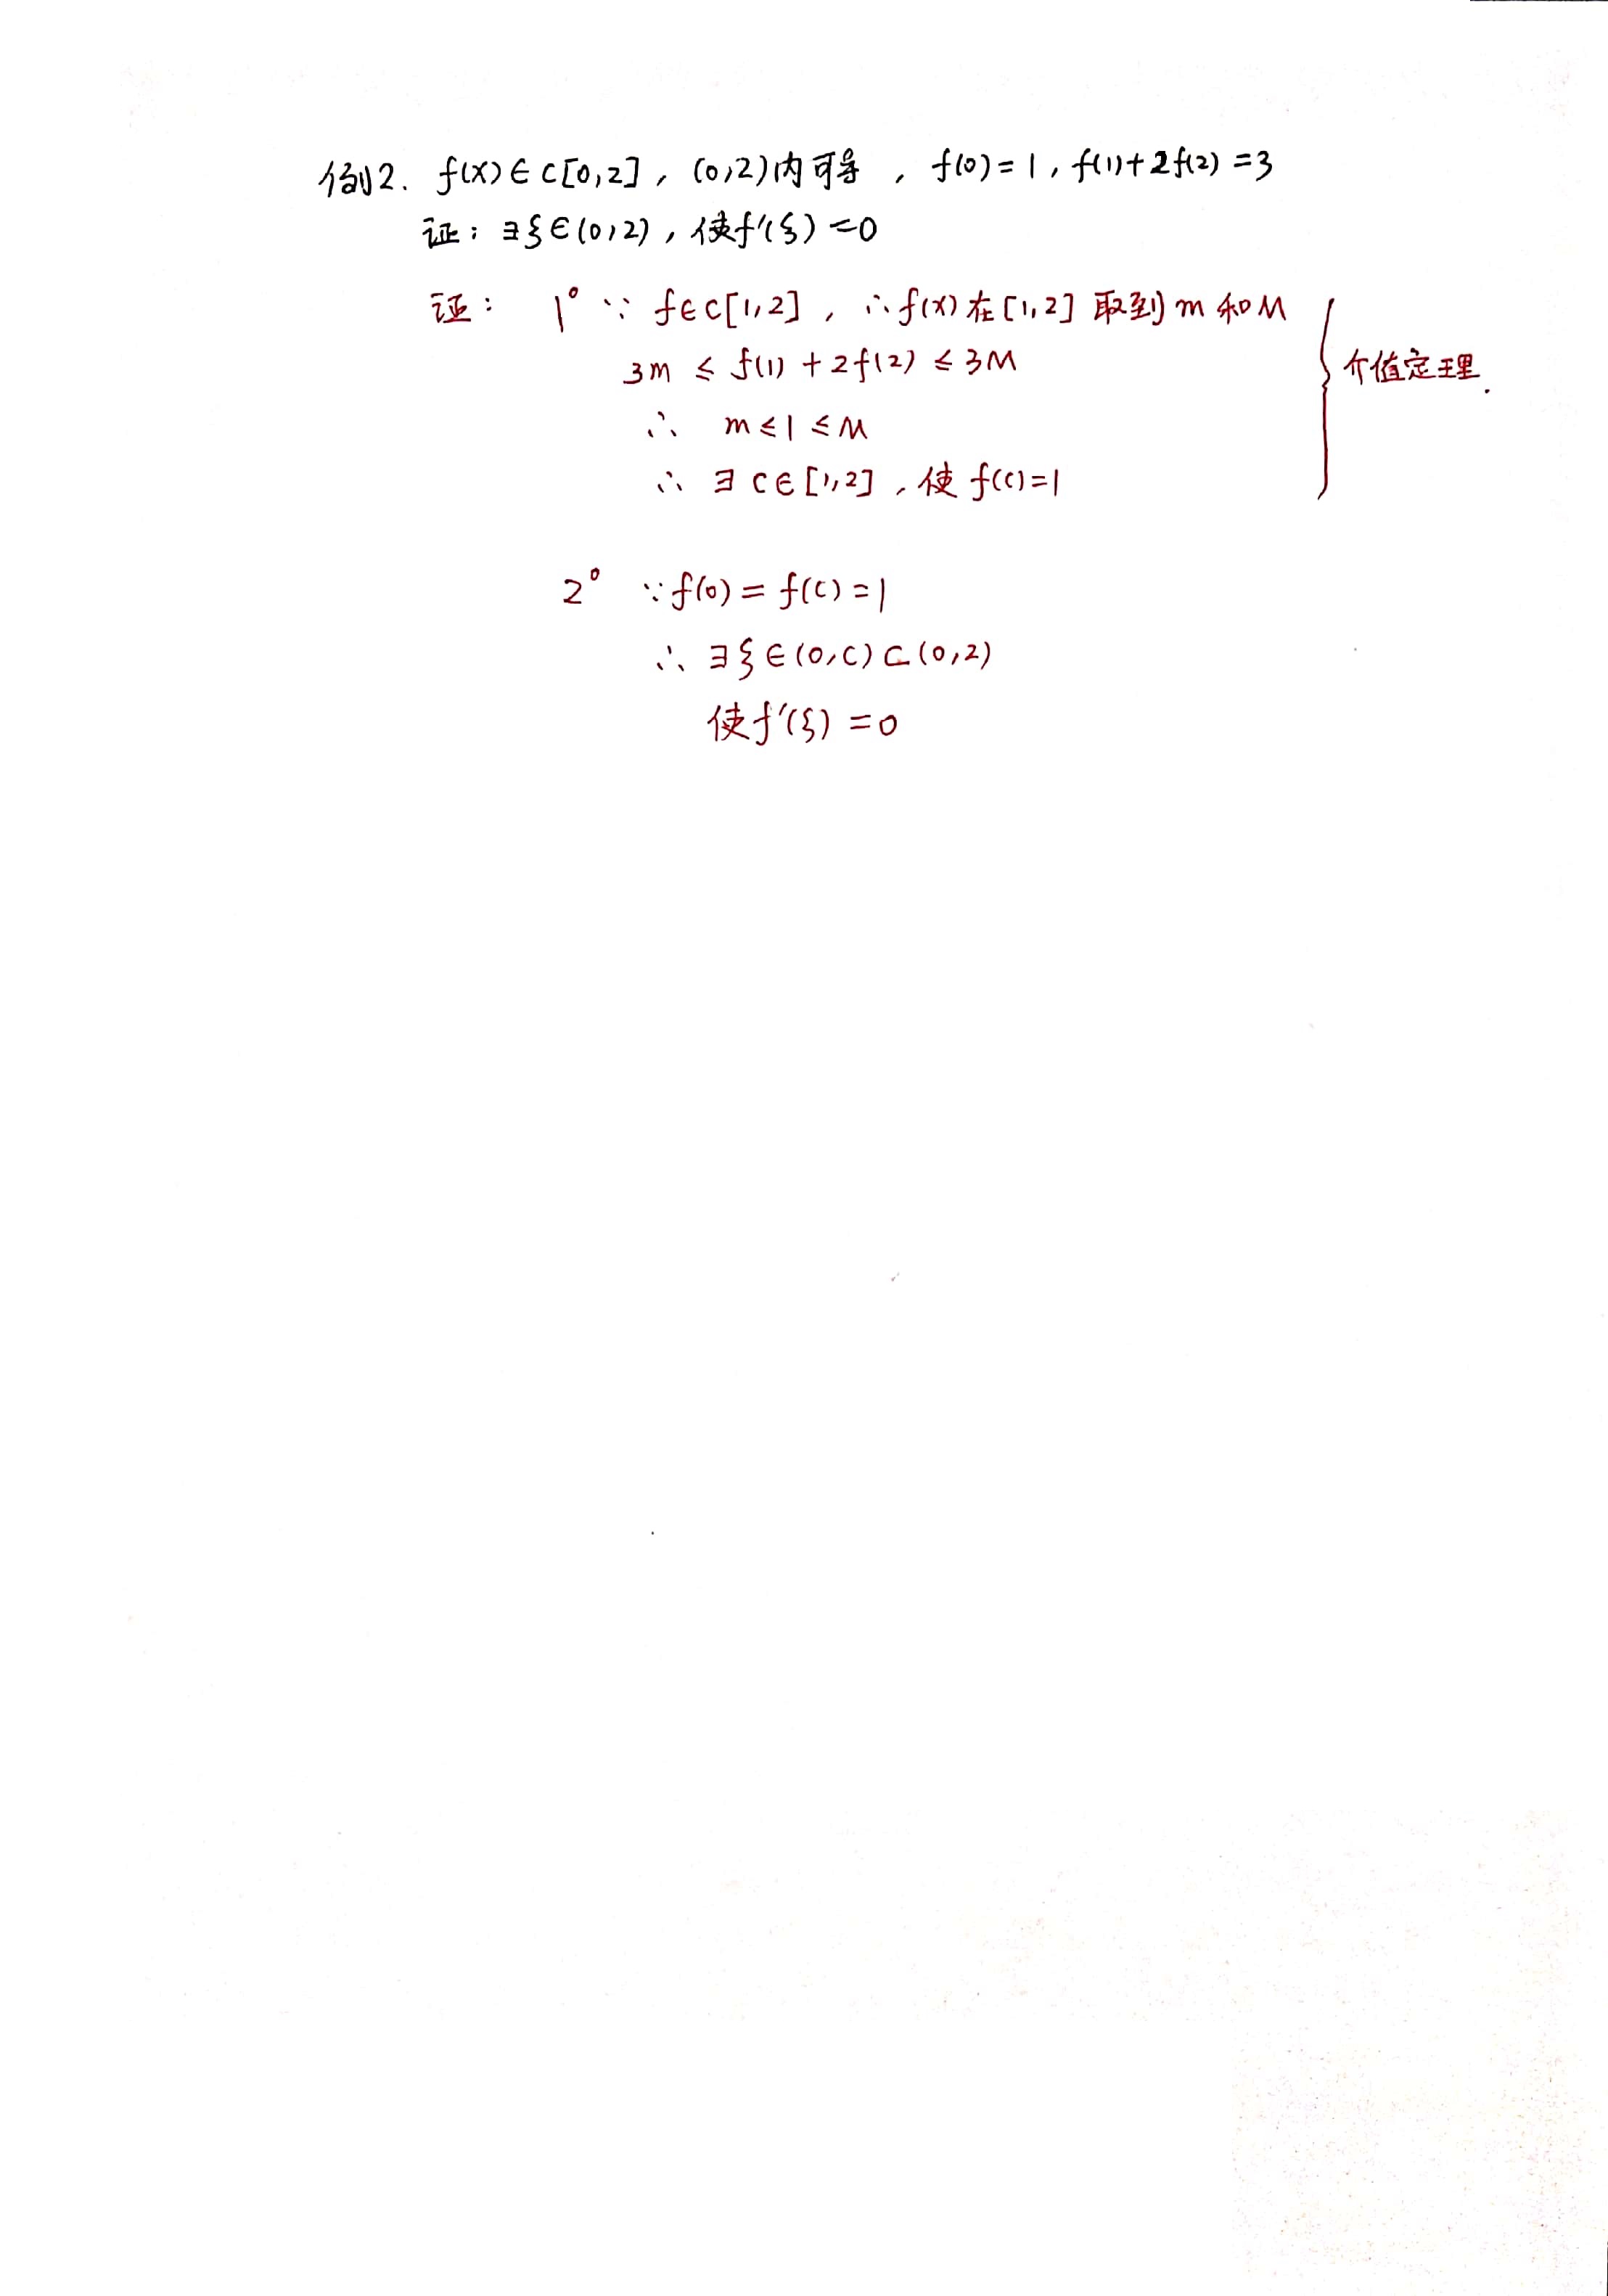 例2. f(x)∈C[0,2], (0,2)内可导, f(0)=1, f(1)+2f(2)=3
证: ∃ξ∈(0,2), 使f′(ξ)=0
证: 1° ∵ f∈C[1,2], ∴f(x)在[1,2]取到m和M
3m ≤ f(1)+2f(2) ≤ 3M
介值定理.
∴ m≤1≤M
∴ ∃ c∈[1,2], 使 f(c)=1
2° ∵f(0)=f(c)=1
∴ ∃ξ∈(0,c)⊂(0,2)
使f′(ξ)=0